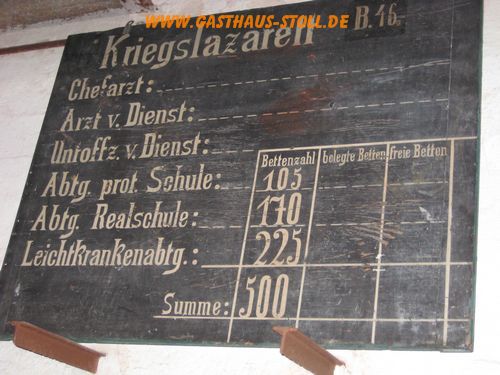 WWW.GASTHAUS-STOLL.DE
Kriegslazarett B.16.
Chefarzt:
Arzt v. Dienst:
Untoffz. v. Dienst:
Bettenzahl belegte Betten freie Betten
Abtg. prot. Schule: 105
Abtg. Realschule: 170
Leichtkrankenabtg.: 225
Summe: 500